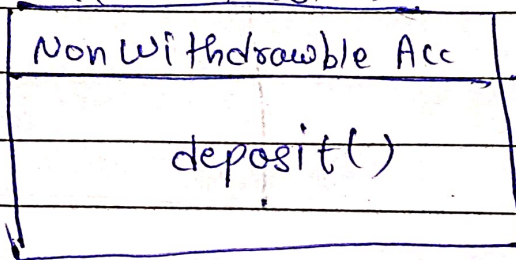 Non Withdrawble Acc
deposit()